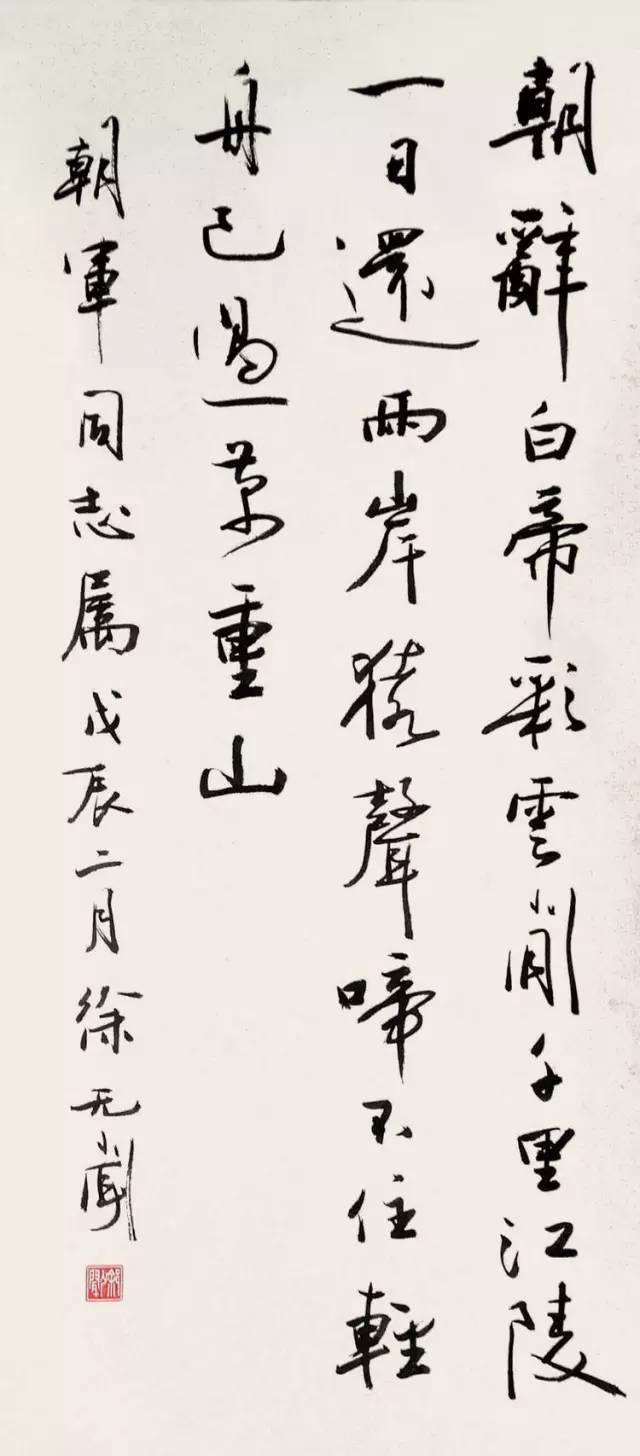 朝辭白帝彩雲間千里江陵
一日還兩岸猿聲啼不住輕
舟已過萬重山
朝軍同志属戊辰二月徐无聞